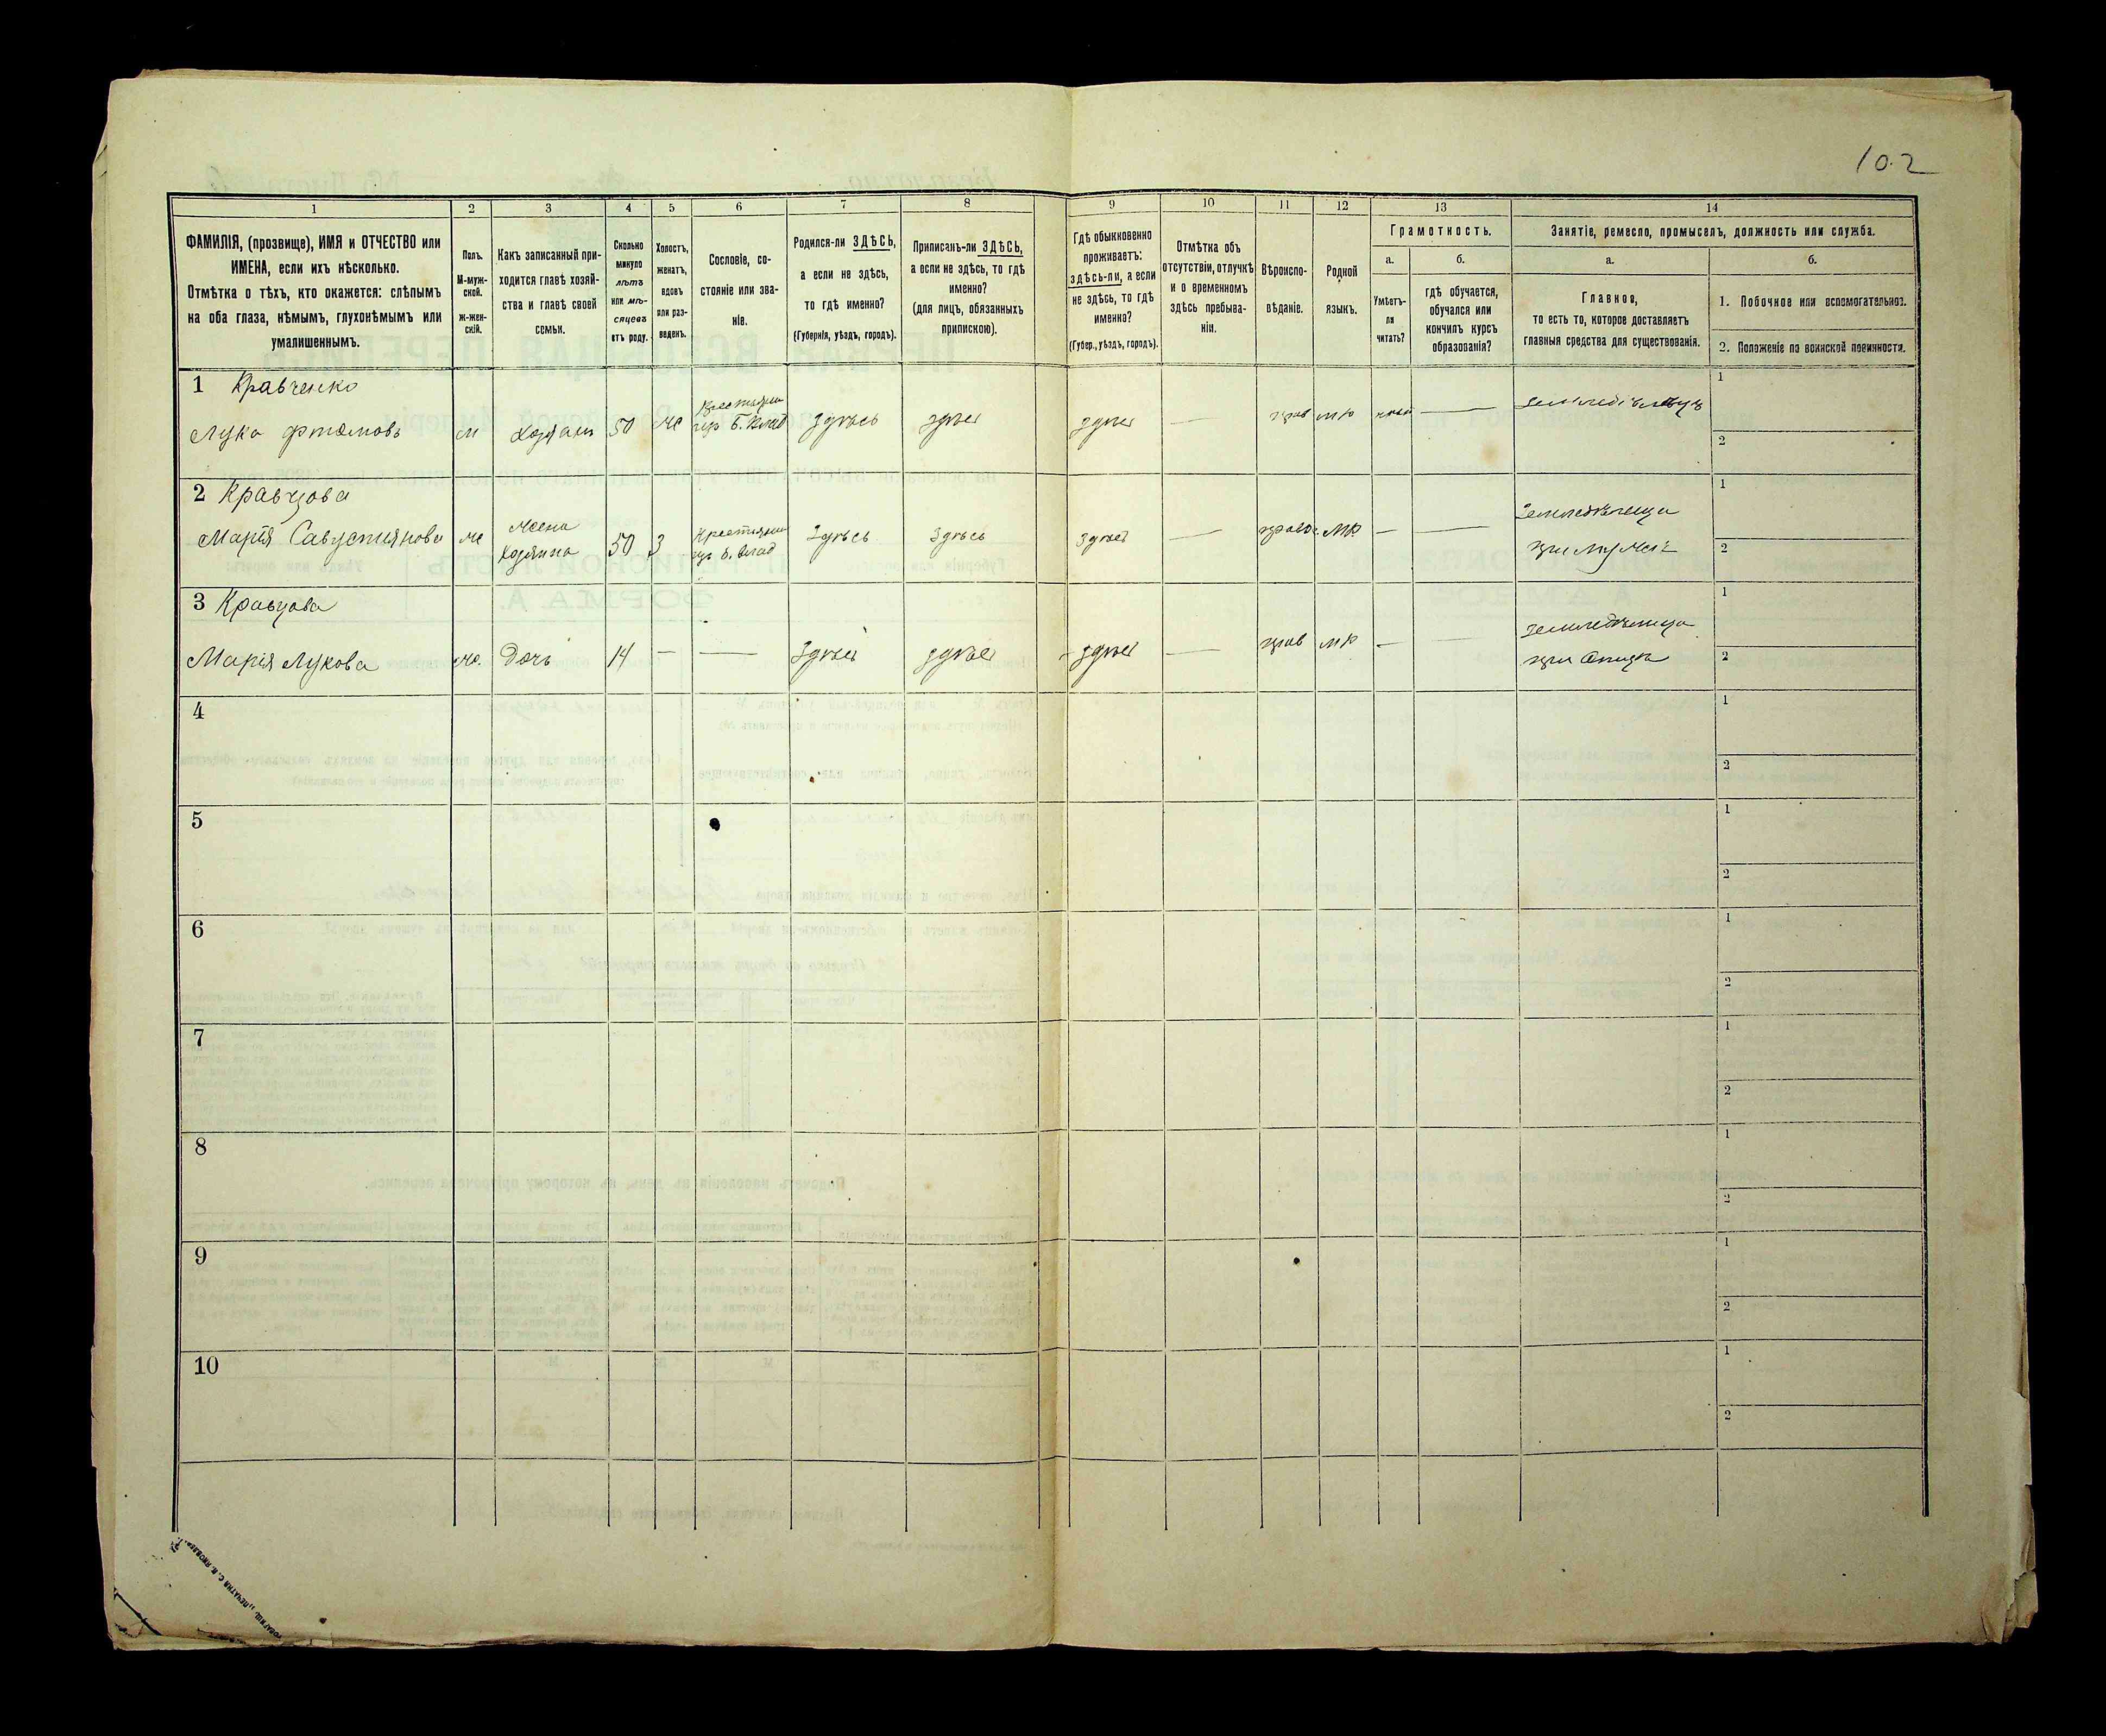 102
1
2
3
4
5
6
7
8
9
10
11
12
13
14
ФАМИЛІЯ, (прозвище), ИМЯ и ОТЧЕСТВО или
ИМЕНА, если ихъ нѣсколько.
Отмѣтка о тѣхъ, кто окажется: слѣпымъ
на оба глаза, нѣмымъ, глухонѣмымъ или
умалишеннымъ.
Полъ.
М-муж-
ской.
ж-жен-
скій.
Какъ записанный при-
ходится главѣ хозяй-
ства и главѣ своей
семьи.
Сколько
минуло
лѣтъ
или мѣ-
сяцевъ
отъ роду.
Холостъ,
женатъ,
вдовъ
или раз-
веденъ.
Сословіе, со-
стояніе или зва-
ніе.
Родился-ли ЗДѢСЬ,
а если не здѣсь,
то гдѣ именно?
(Губернія, уѣздъ, городъ).
Приписанъ-ли ЗДѢСЬ,
а если не здѣсь, то гдѣ
именно?
(для лицъ, обязанныхъ
припискою).
Гдѣ обыкновенно
проживаетъ:
здѣсь-ли, а если
не здѣсь, то гдѣ
именно?
(Губер., уѣздъ, городъ).
Отмѣтка объ
отсутствіи, отлучкѣ
и о временномъ
здѣсь пребыва-
ніи.
Вѣроиспо-
вѣданіе.
Родной
языкъ.
Грамотность.
а.
Умѣетъ-
ли
читать?
б.
гдѣ обучается,
обучался или
кончилъ курсъ
образованія?
Занятіе, ремесло, промыселъ, должность или служба.
а.
Главное,
то есть то, которое доставляетъ
главныя средства для существованія.
б.
1. Побочное или вспомогательное.
2. Положеніе по воинской повинности.
1 Кравченко
Лука
м
Хозяинъ
50
же
здѣсь
здѣсь
здѣсь
—
прав
мр
—
1
2
2 Кравцова
Марія Савустиянова
же
Жена
хозяина
50
з
здѣсь
здѣсь
здѣсь
—
правос
мр.
—
—
при мужѣ
1
2
3 Кравцова
Марія Лукова
же.
Дочь
14
—
—
здѣсь
здѣсь
здѣсь
—
прав
мр
—
—
при Отцѣ
1
2
4
1
2
5
1
2
6
1
2
7
1
2
8
1
2
9
1
2
10
1
2